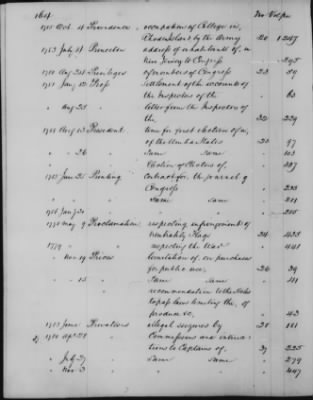 164. No Vol. pa:
1785 Oct. 4 Providence, occupation of College in,
Rhode Island by the Army 20 1 247
1783 July 11 Princeton address of inhabitants of, in
New Jersey to Congress " 295
1780 Aug 24 Privileges of members of Congress 23 59
1781 Jany 12 Press Settlement of the accounts of
the Inspectors of the " 63
" Aug 23 " letter from the Inspectors of
the 23 229
1788 Aug 13 President time for first election of a,
of the United States 23 97
" " 26 " Same Same " 103
" " Election of Electors of, " 107
1785 Jan 21 Printing contract for, the journal of
Congress " 203
" " Same Same " 211
1786 Jany 30 " " 205
1778 May 9 Proclamation respecting infringements of
Neutrality Flags 24 433
1779 " respecting the War " 441
" Nov 19 Prices limitation of, on purchases
for public use, 26 39
" " 15 " Same Same " 41
recommendation to the States
to pass laws limiting the, of
produce &c, " 43
1783 June Privateers illegal seizures by 28 181
1780 Apl 28 " Commissions and instruc=
tions to Captains of 37 225
" July 27 " Same Same " 279
" Nov 3 " " 447